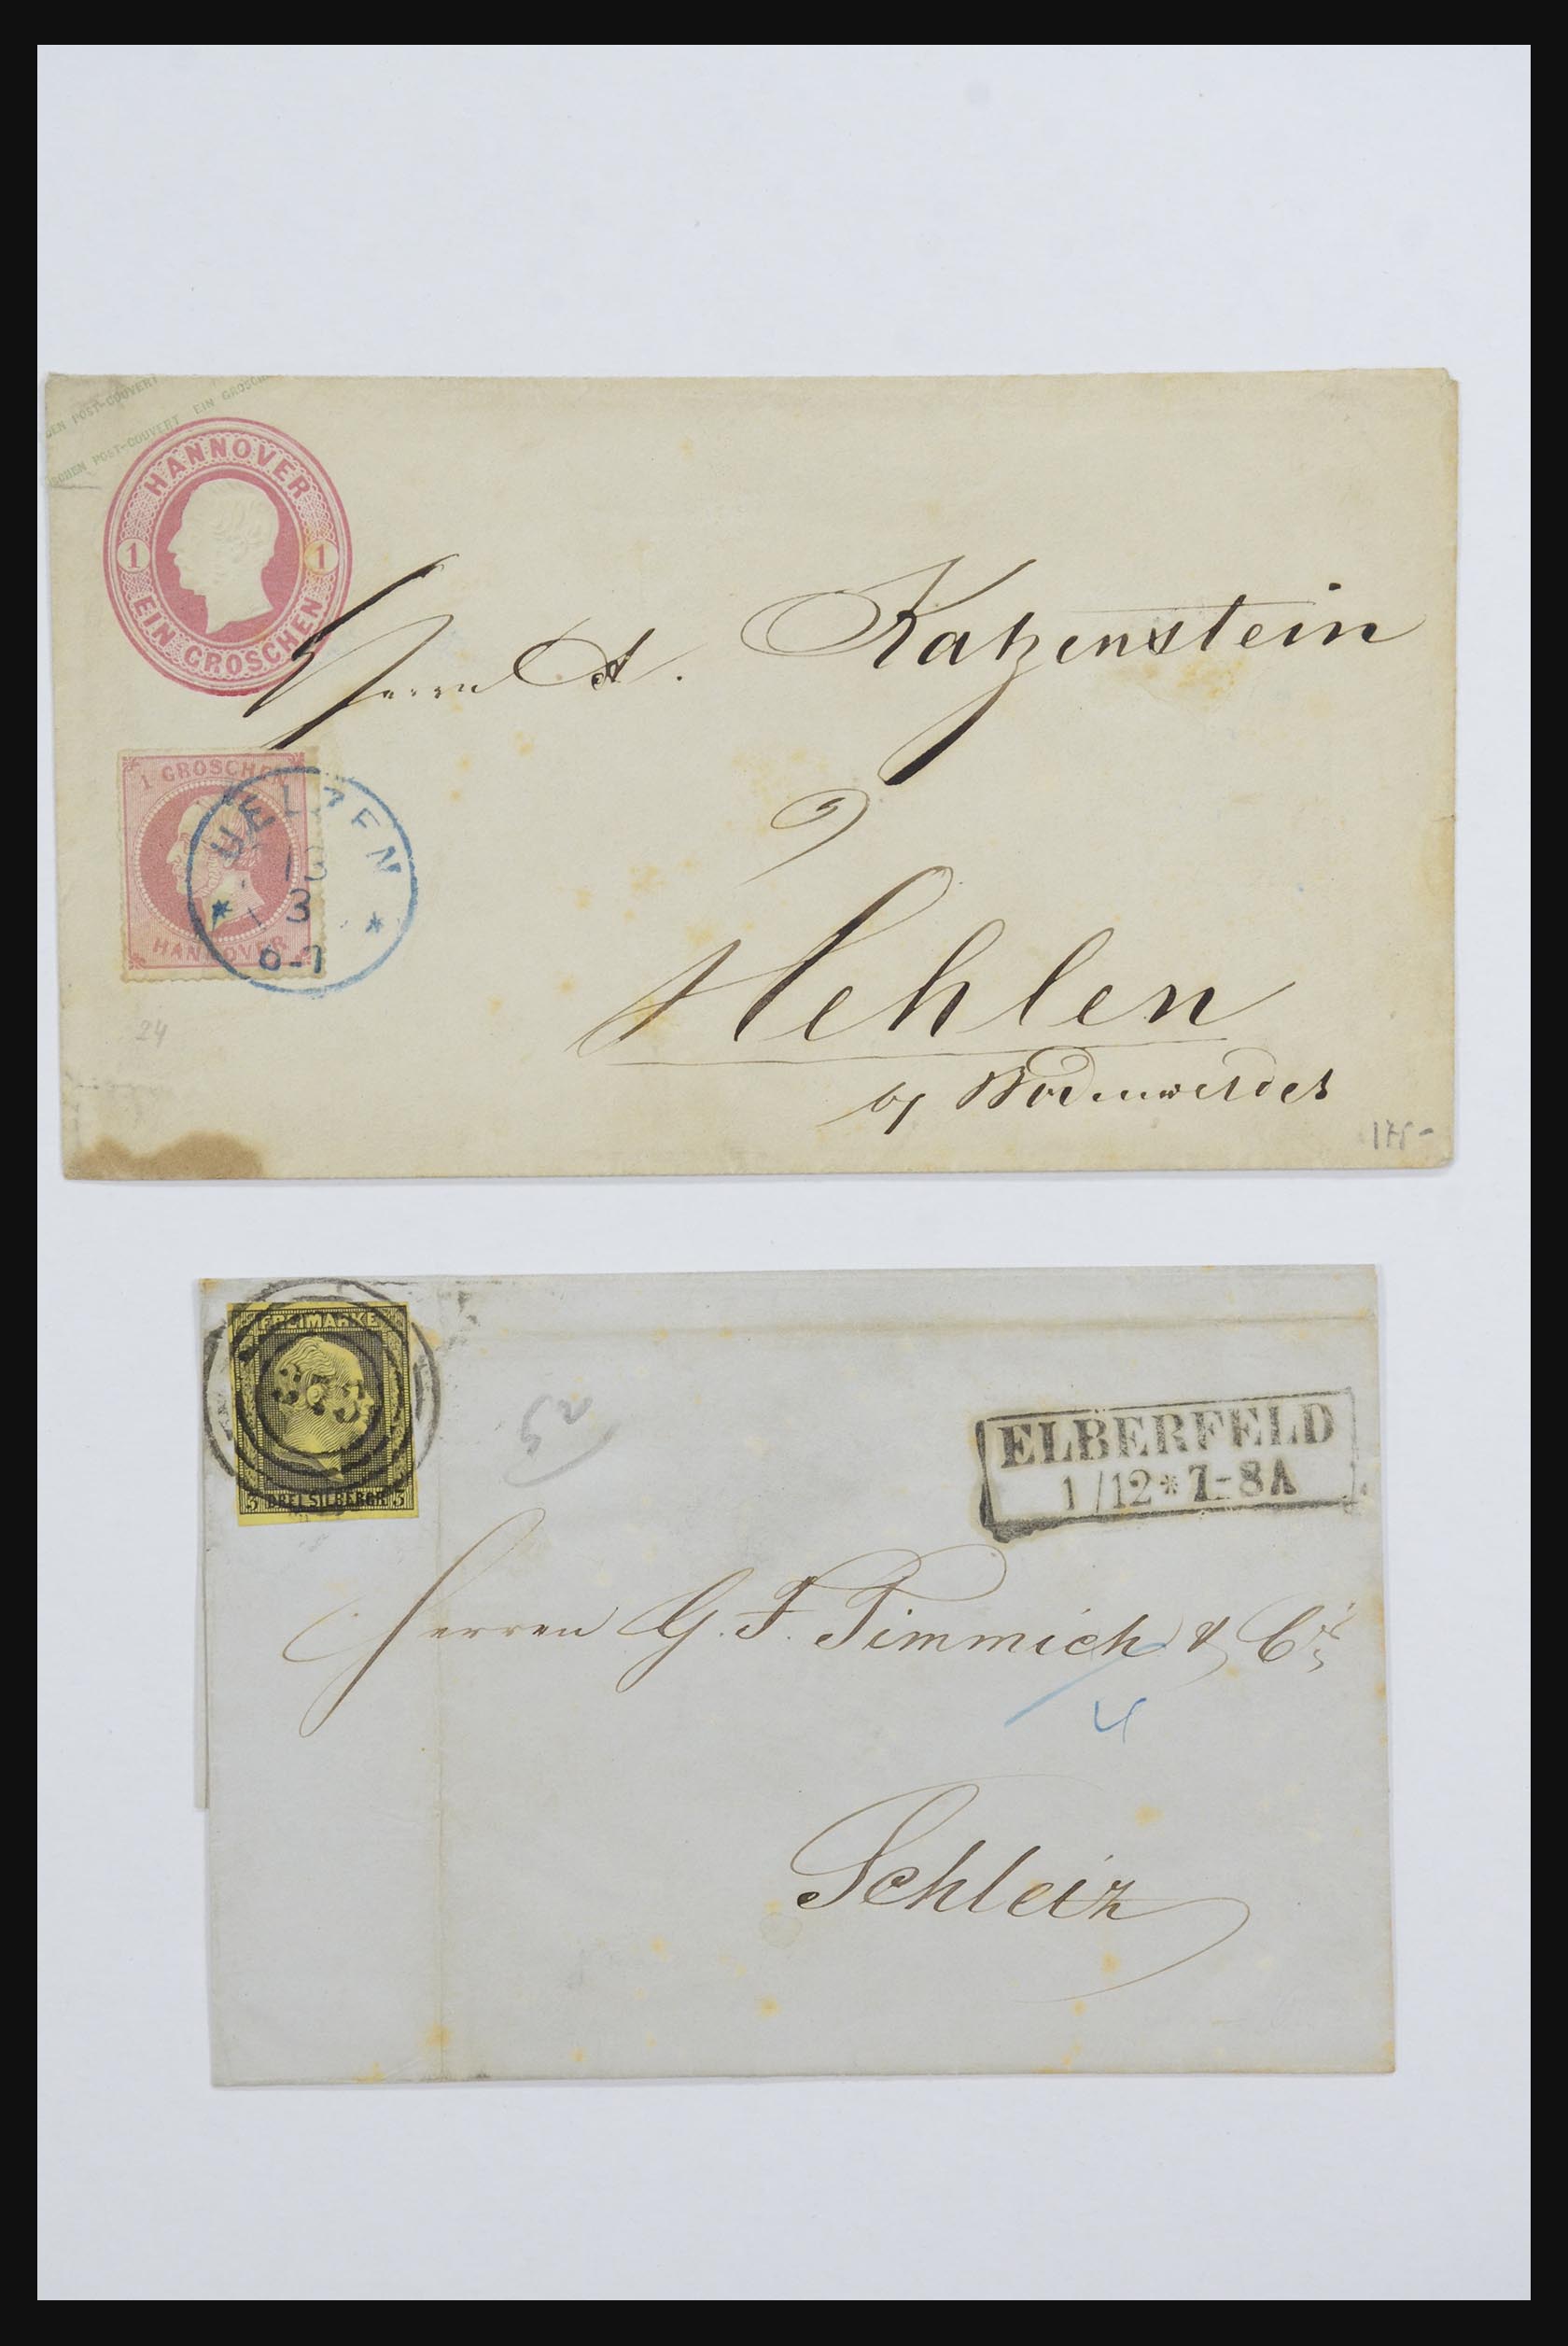 DEN POST-COUVERT
SCHEN POST-COUVERT EIN GROSCHEN
HANNOVER
1 1
EIN GROSCHEN
Herrn A. Katzenstein
1 GROSCHEN
HANNOVER
UELZEN
13
3
6-7
Hehlen
by Bodenwerder
24
175-
FREIMARKE
3 DREI SILBERGR. 3
ELBERFELD
1/12 * 7-8A
Herren G. F. Timmich & Cie
4
Schleiz